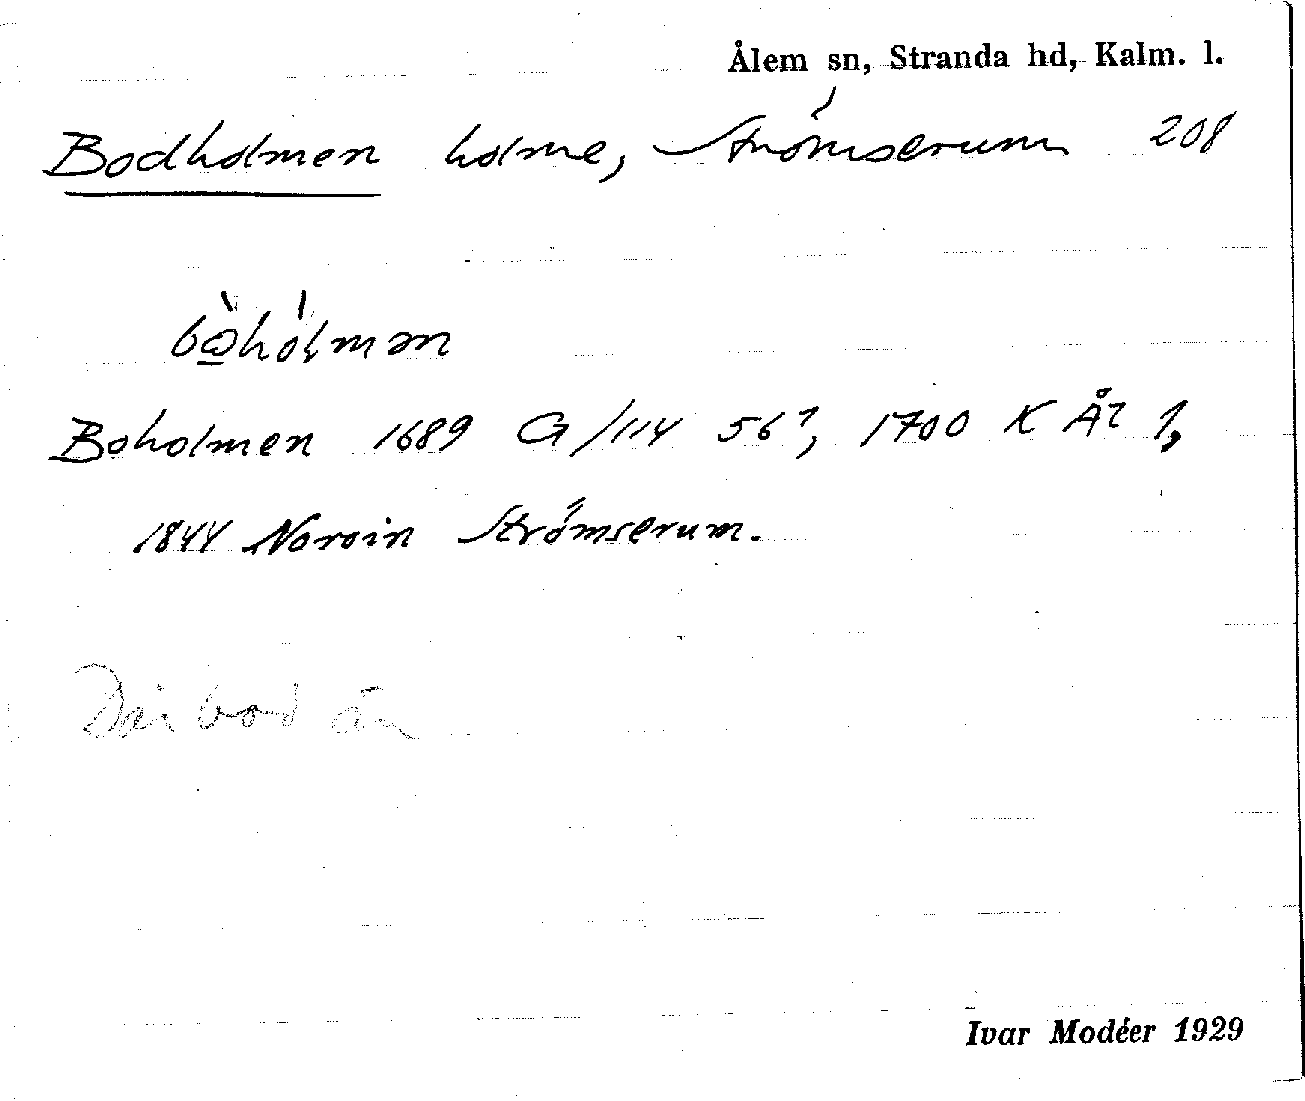 Ålem sn, Stranda hd, Kalm. l.
Bodholmen holme, Strömserum 208
bò̲hólmən
Boholmen 1689 G/114 56¹, 1700 K Ål 1,
1844 Norvin Strömserum.
Där bod än
Ivar Modéer 1929